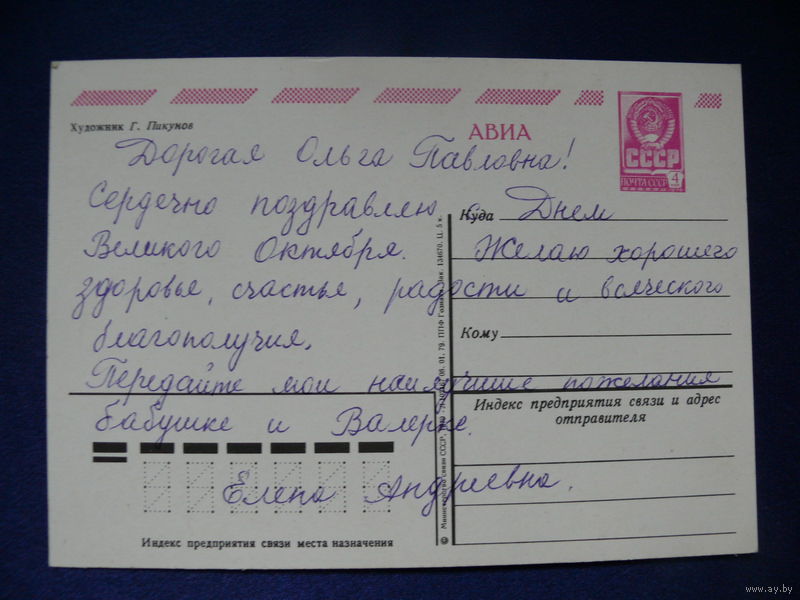 Художник Г. Пикунов
АВИА
СССР
ПОЧТА СССР 4
Дорогая Ольга Павловна!
Сердечно поздравляю Днем
Великого Октября. Желаю хорошего
здоровье, счастье, радости и всяческого
благополучия.
Передайте мои наилучшие пожелания
бабушке и Валерке.
Елена Андреевна.
Куда
Кому
Индекс предприятия связи и адрес
отправителя
Индекс предприятия связи места назначения
© Министерство связи СССР,
www.ay.by